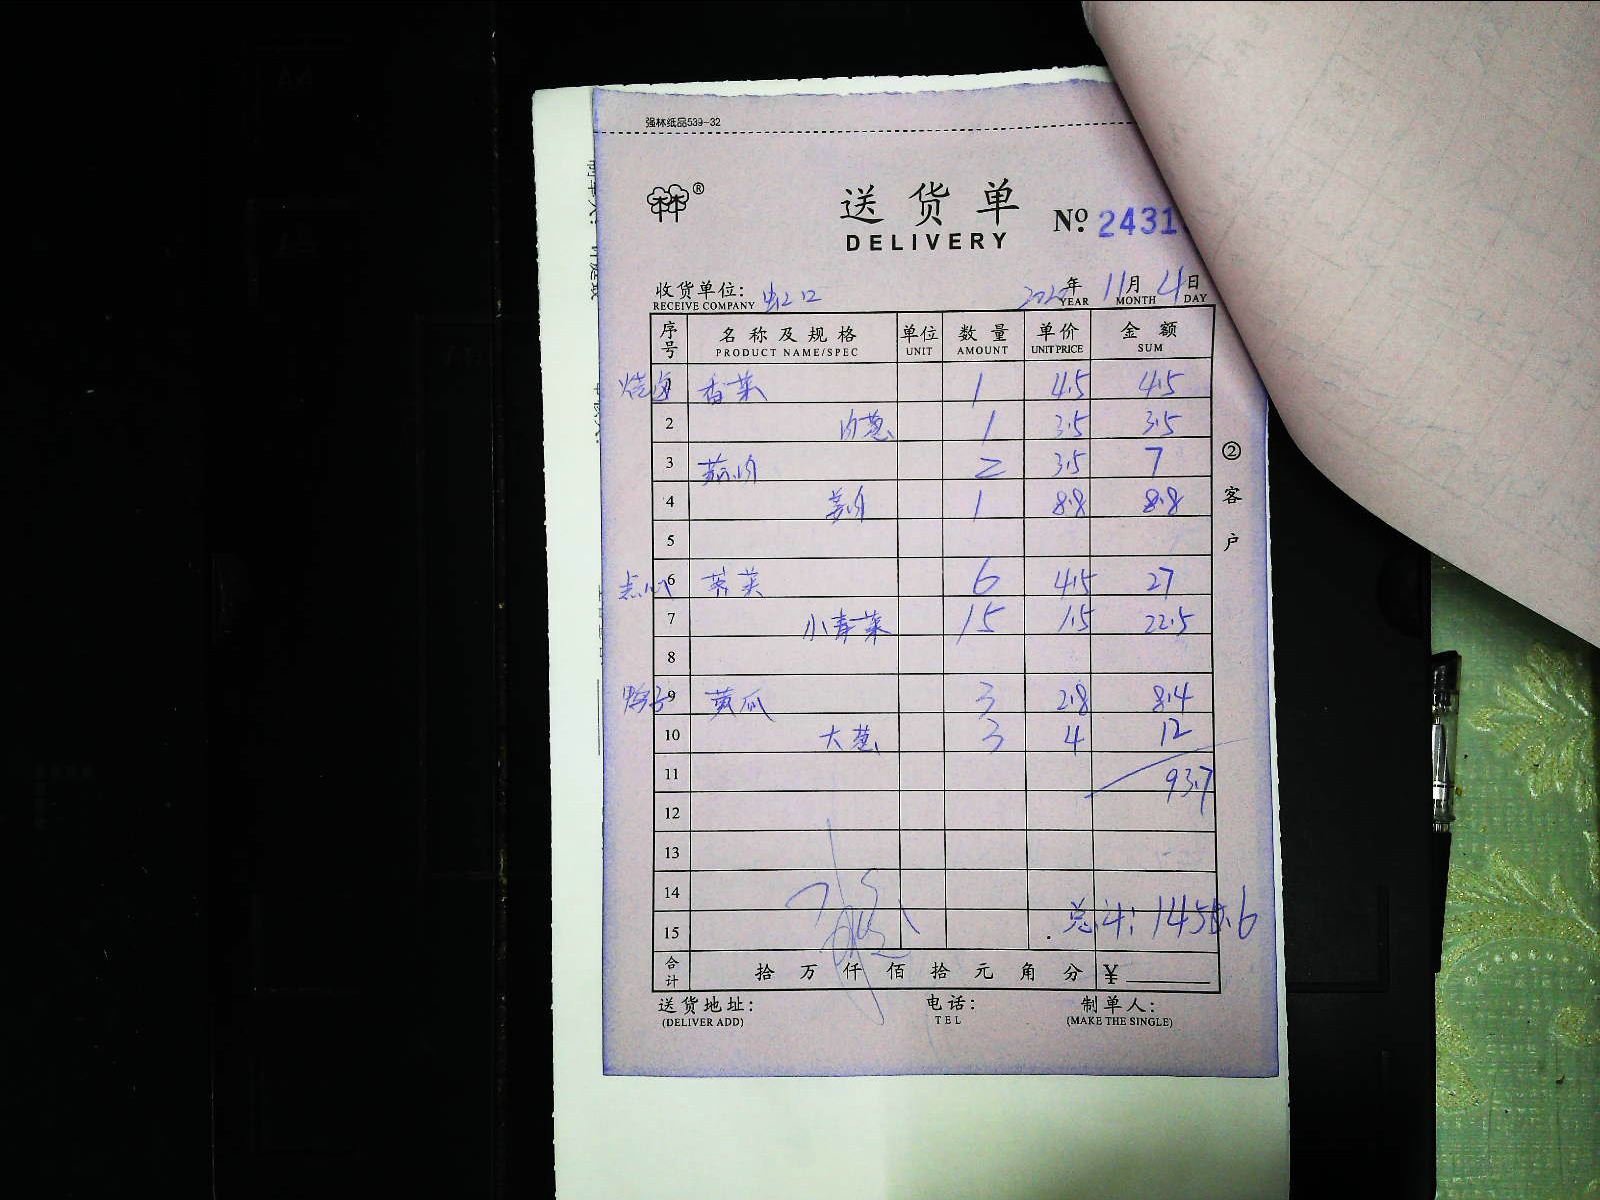 强林纸品539-32
®
送货单
DELIVERY
Nº 2431
收货单位: 虹口
RECEIVE COMPANY
2020年 11月 4日
YEAR MONTH DAY
序号 名称及规格 单位 数量 单价 金额
PRODUCT NAME/SPEC UNIT AMOUNT UNIT PRICE SUM
烧卤 香菜 1 4.5 4.5
2 肉葱 1 3.5 3.5
3 2 3.5 7
4 1 8.8 8.8
5
点心 6 荠菜 6 4.5 27
7 小青菜 15 1.5 22.5
8
鸭子 9 黄瓜 3 2.8 8.4
10 大葱 3 4 12
11 93.7
12
13
14
15 总计:
合计 拾 万 仟 佰 拾 元 角 分 ¥
送货地址: 电话: 制单人:
(DELIVER ADD) TEL (MAKE THE SINGLE)
② 客户